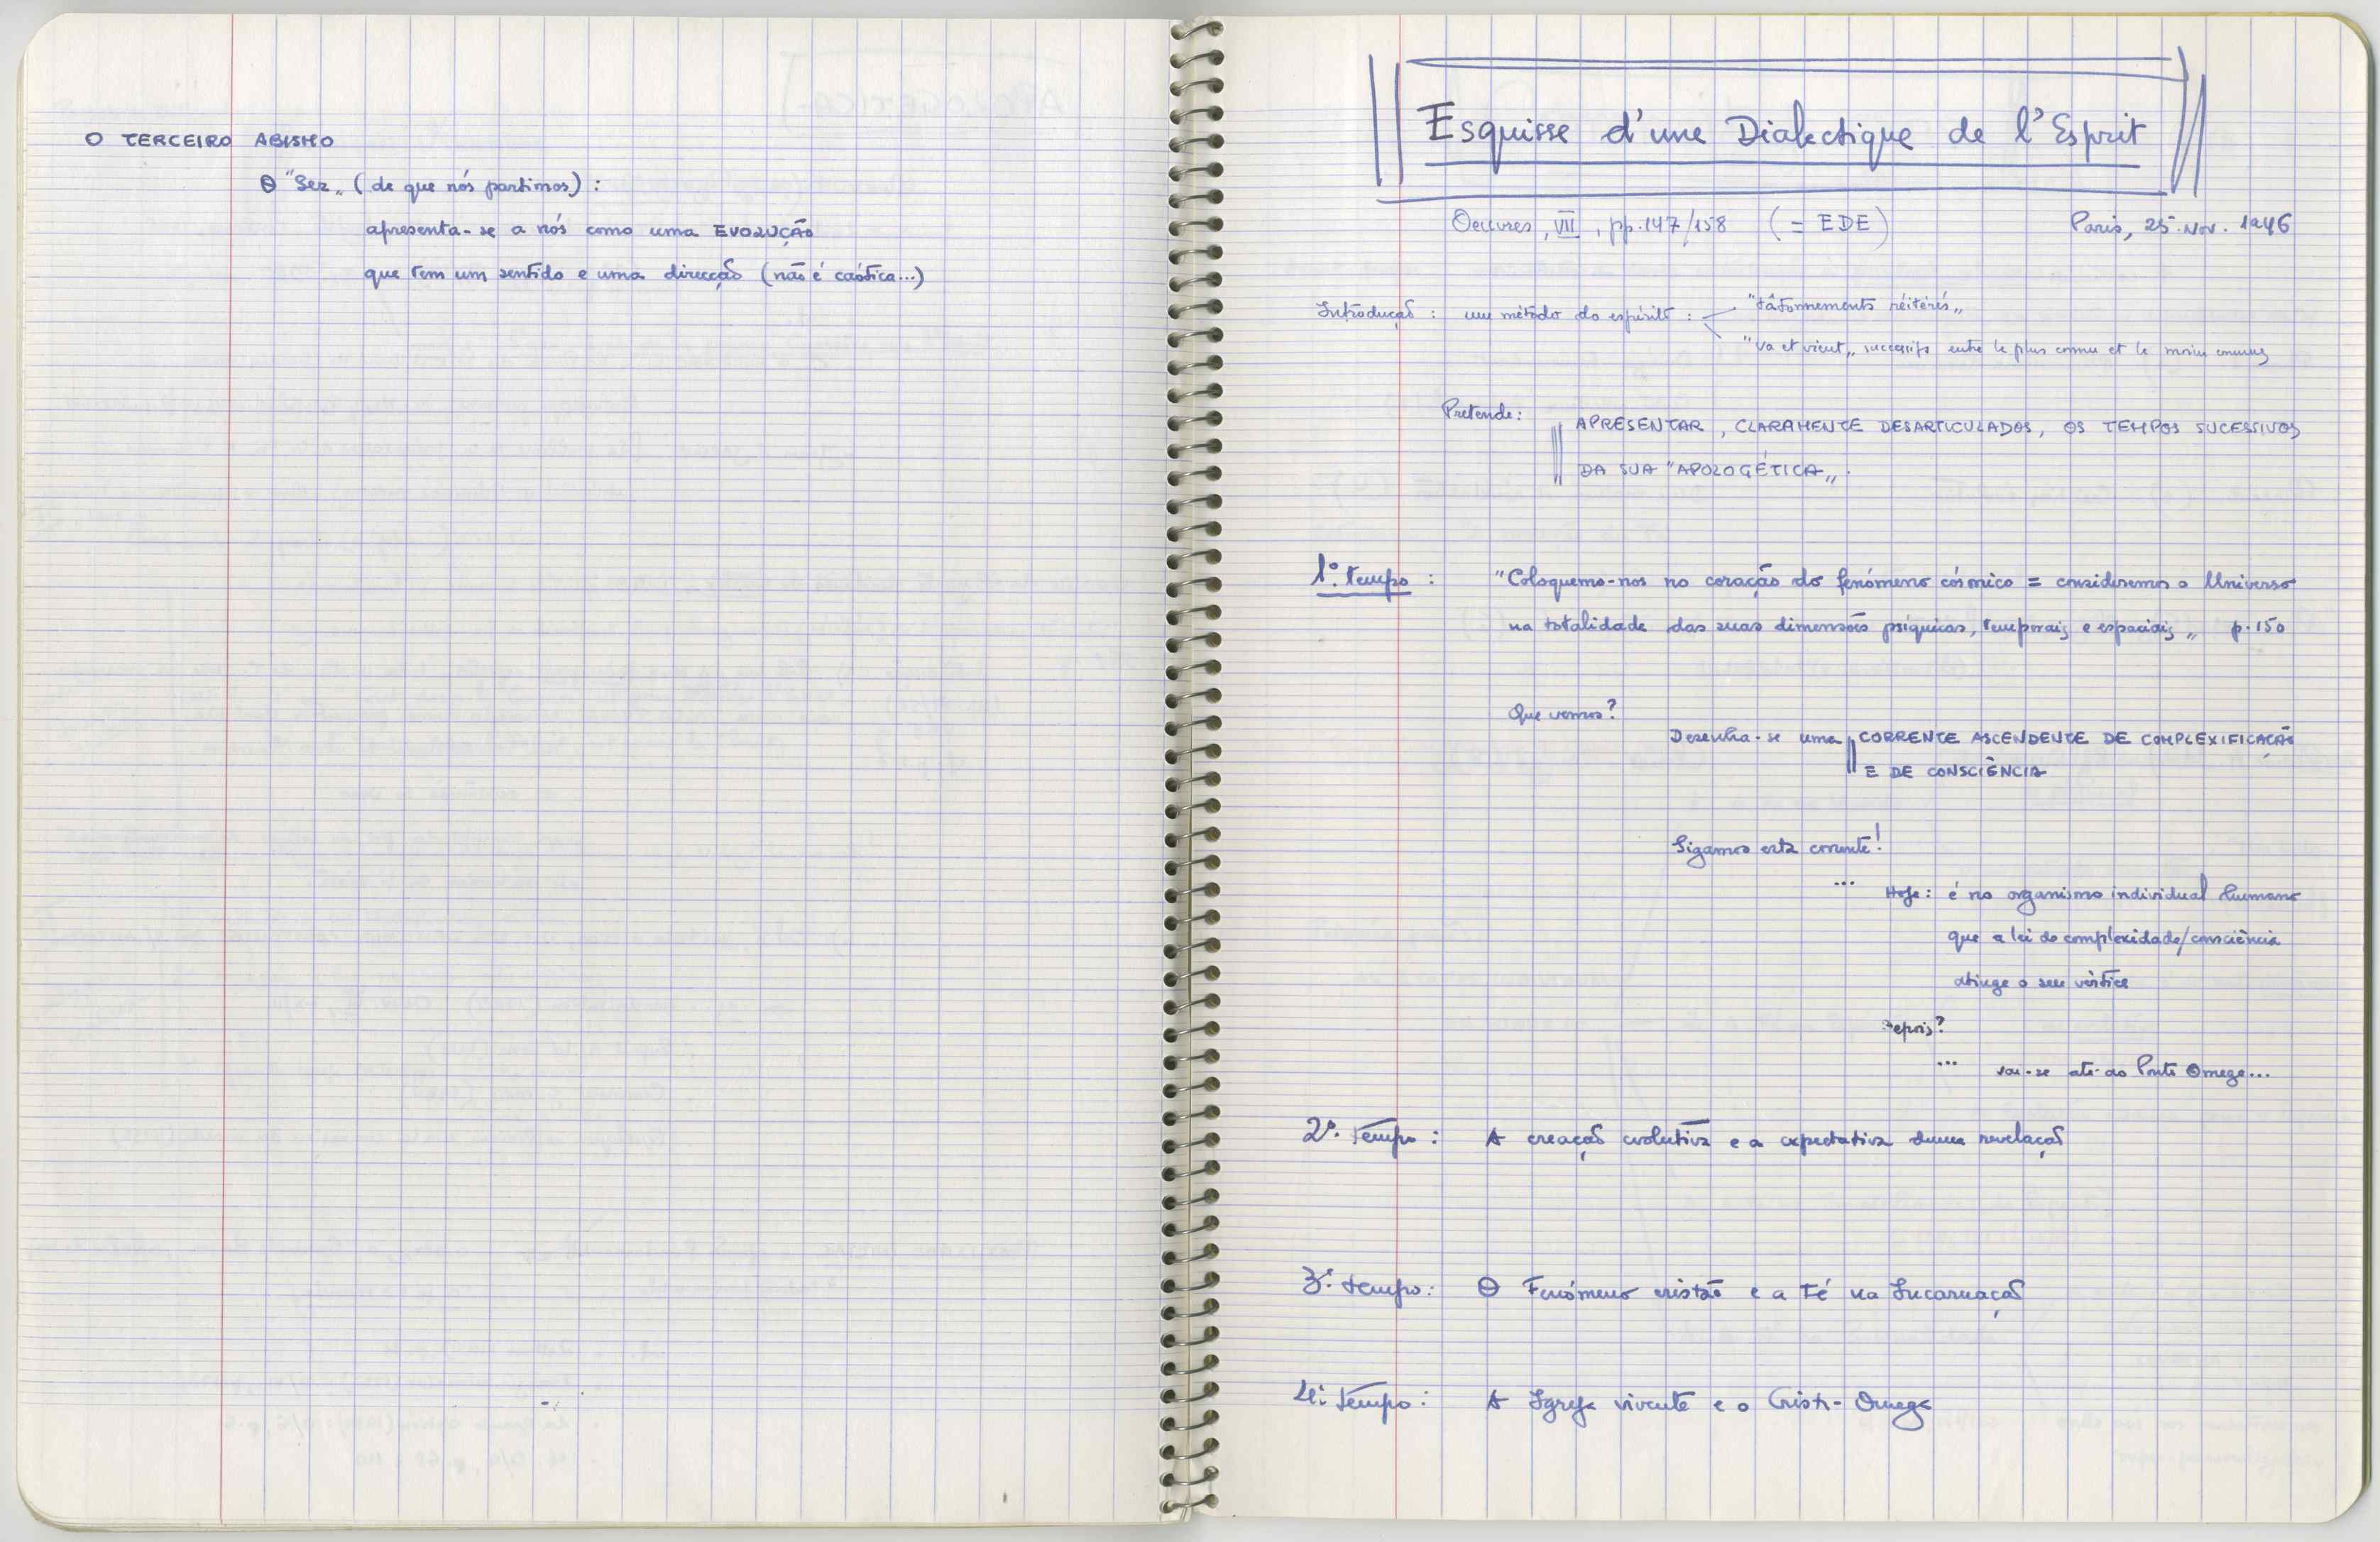 O TERCEIRO ABISMO
O "Ser„ (de que nós partimos) :
apresenta-se a nós como uma EVOLUÇÃO
que tem um sentido e uma direcção (não é caótica...)
Esquisse d'une Dialectique de l'Esprit
Oeuvres, VII, pp. 147/158 (= EDE) Paris, 25. Nov. 1946
Introdução : um método do espírito : "tâtonnements réitérés„
"va et vient„ successifs entre le plus connu et le moins connu
Pretende:
APRESENTAR, CLARAMENTE DESARTICULADOS, OS TEMPOS SUCESSIVOS
DA SUA "APOLOGÉTICA„.
1º. tempo : "Coloquemo-nos no coração do fenómeno cósmico = consideremos o Universo
na totalidade das suas dimensões psíquicas, temporais e espaciais„ p. 150
Que vemos?
Desenha-se uma CORRENTE ASCENDENTE DE COMPLEXIFICAÇÃO
E DE CONSCIÊNCIA
Sigamos esta corrente!
... Hoje: é no organismo individual humano
que a lei de complexidade/consciência
atinge o seu vértice
Depois?
... vai-se até ao Ponto Omega...
2º. tempo : A creação evolutiva e a expectativa duma revelação
3º. tempo : O Fenómeno cristão e a Fé na Incarnação
4º. tempo : A Igreja vivente e o Cristo-Omega